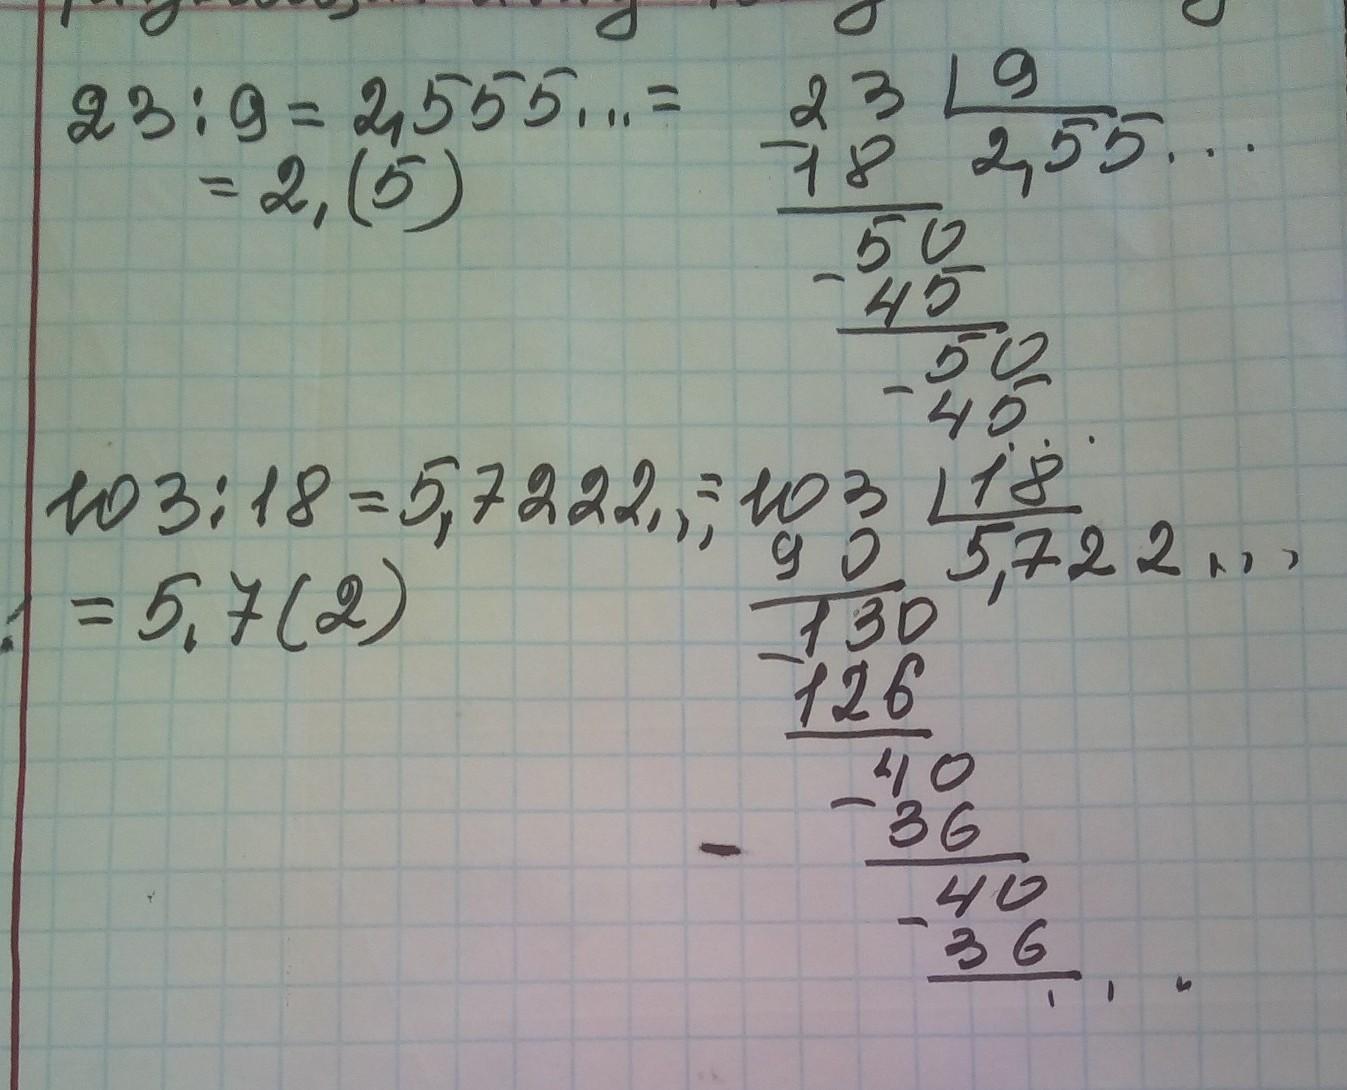 23:9=2,555...=
=2,(5)
23 9
-18 2,55...
50
-45
50
-45
...
103:18=5,7222...=
=5,7(2)
103 18
90 5,722...
130
-126
40
-36
40
-36
...